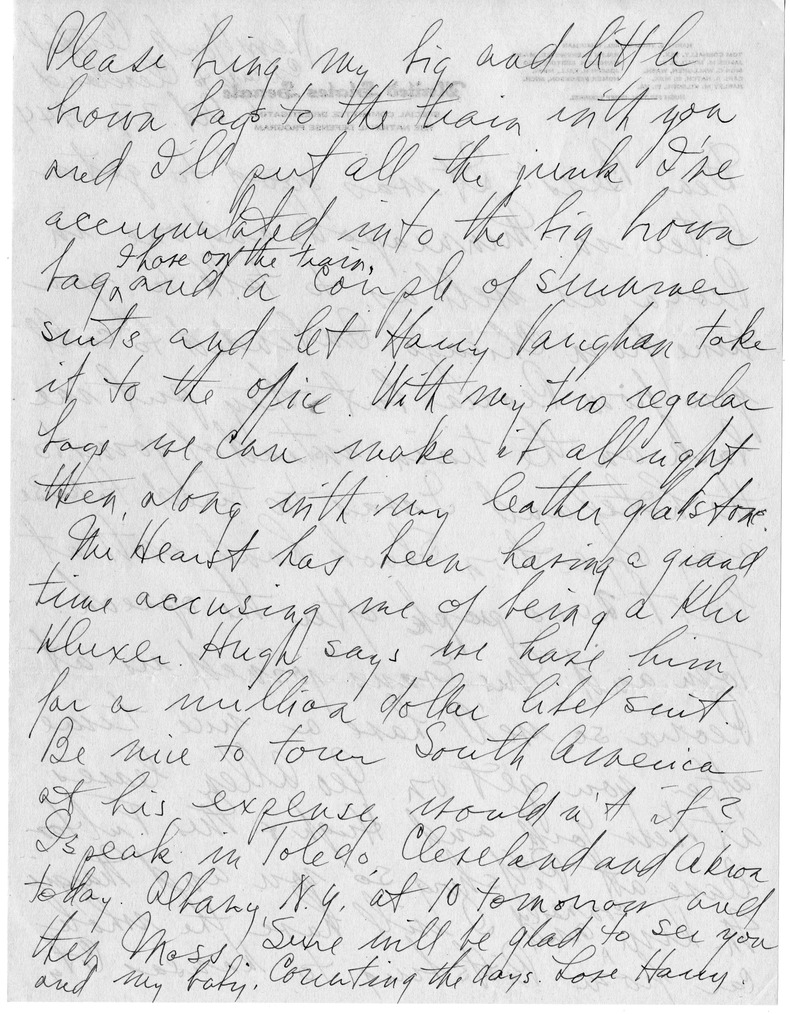 Please bring my big and little
brown bags to the train with you
and I'll put all the junk I've
accumulated into the big brown
I have on the train,
bag, and a couple of summer
suits and let Harry Vaughan take
it to the office. With my two regular
bags we can make it all right
then, along with my leather gladstone.
Mr Hearst has been having a grand
time accusing me of being a Klu
Kluxer. Hugh says we have him
for a million dollar libel suit.
Be nice to tour South America
at his expense wouldn't it?
I speak in Toledo, Cleveland and Akron
today. Albany, N.Y. at 10 tomorrow and
then Mass. Sure will be glad to see you
and my baby. Counting the days. Love Harry.
United States Senate